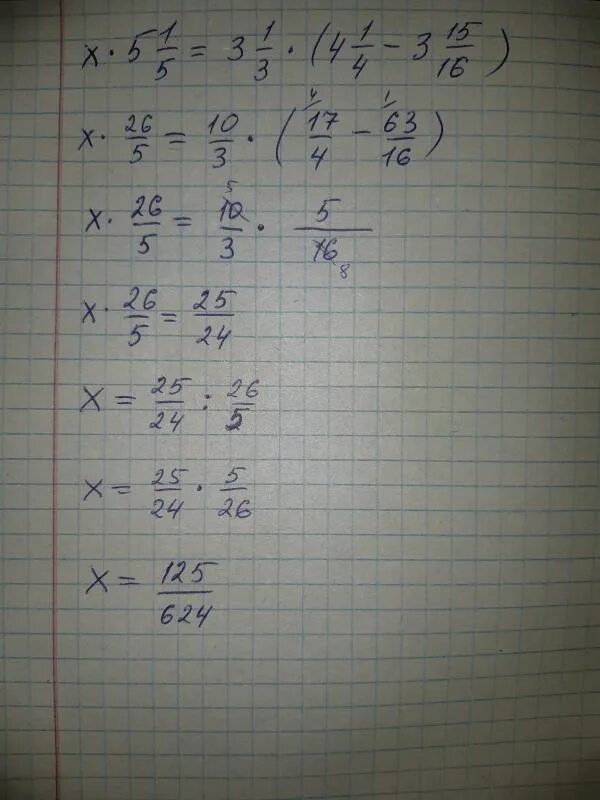 x · 5 1/5 = 3 1/3 · (4 1/4 − 3 15/16)
x · 26/5 = 10/3 · (⁴⁄17/4 − ¹⁄63/16)
x · 26/5 = 10⁵/3 · 5/16₈
x · 26/5 = 25/24
x = 25/24 : 26/5
x = 25/24 · 5/26
x = 125/624